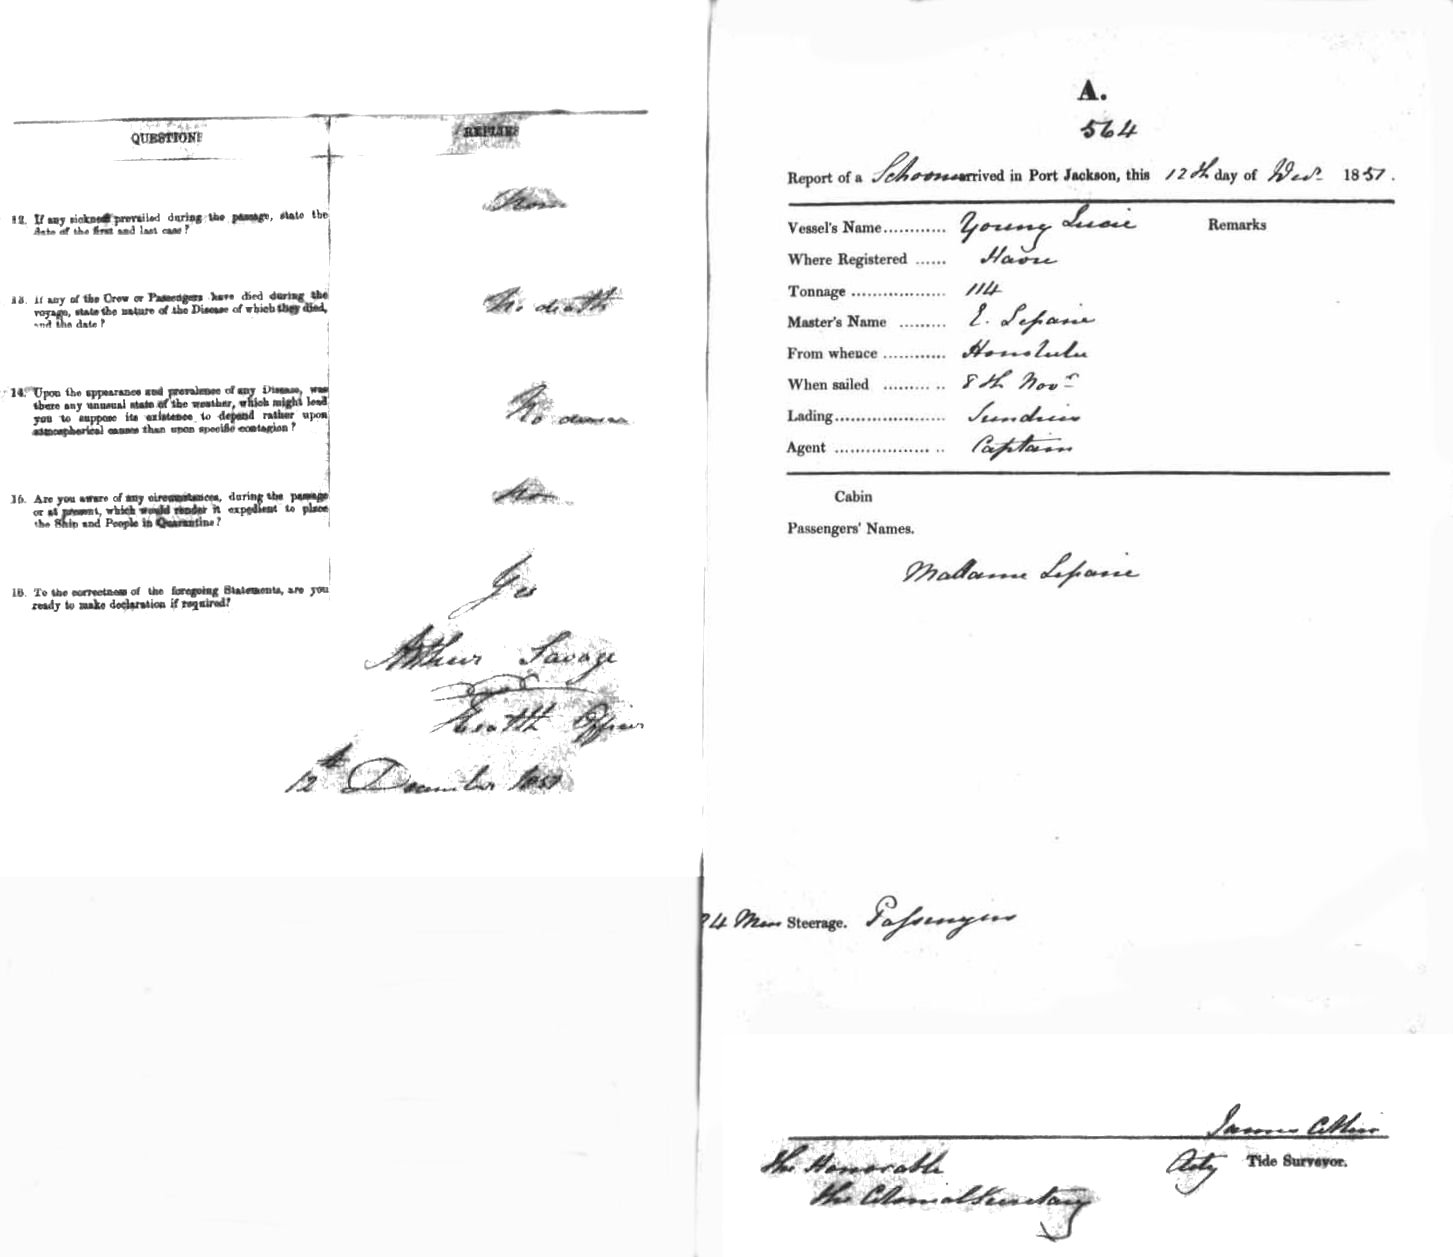 QUESTIONS
REPLIES
12. If any sickness prevailed during the passage, state the
date of the first and last case?
None
13. If any of the Crew or Passengers have died during the
voyage, state the nature of the Disease of which they died,
and the date?
No death
14. Upon the appearance and prevalence of any Disease, was
there any unusual state of the weather, which might lead
you to suppose its existence to depend rather upon
atmospherical causes than upon specific contagion?
No disease
15. Are you aware of any circumstances, during the passage
or at present, which would render it expedient to place
the Ship and People in Quarantine?
No
16. To the correctness of the foregoing Statements, are you
ready to make declaration if required?
Yes
Arthur Savage
Health Officer
12th December 1851
A.
564
Report of a Schooner arrived in Port Jackson, this 12th day of Decr 1851.
Vessel's Name............ Young Lucie Remarks
Where Registered ...... Havre
Tonnage .................. 114
Master's Name ......... E. Lepaire
From whence ............ Honolulu
When sailed ......... .. 8th Novr
Lading..................... Sundries
Agent .................. .. Captain
Cabin
Passengers' Names.
Madame Lepaire
24 Men Steerage. Passengers
James
Actg Tide Surveyor.
The Honorable
the Colonial Secretary